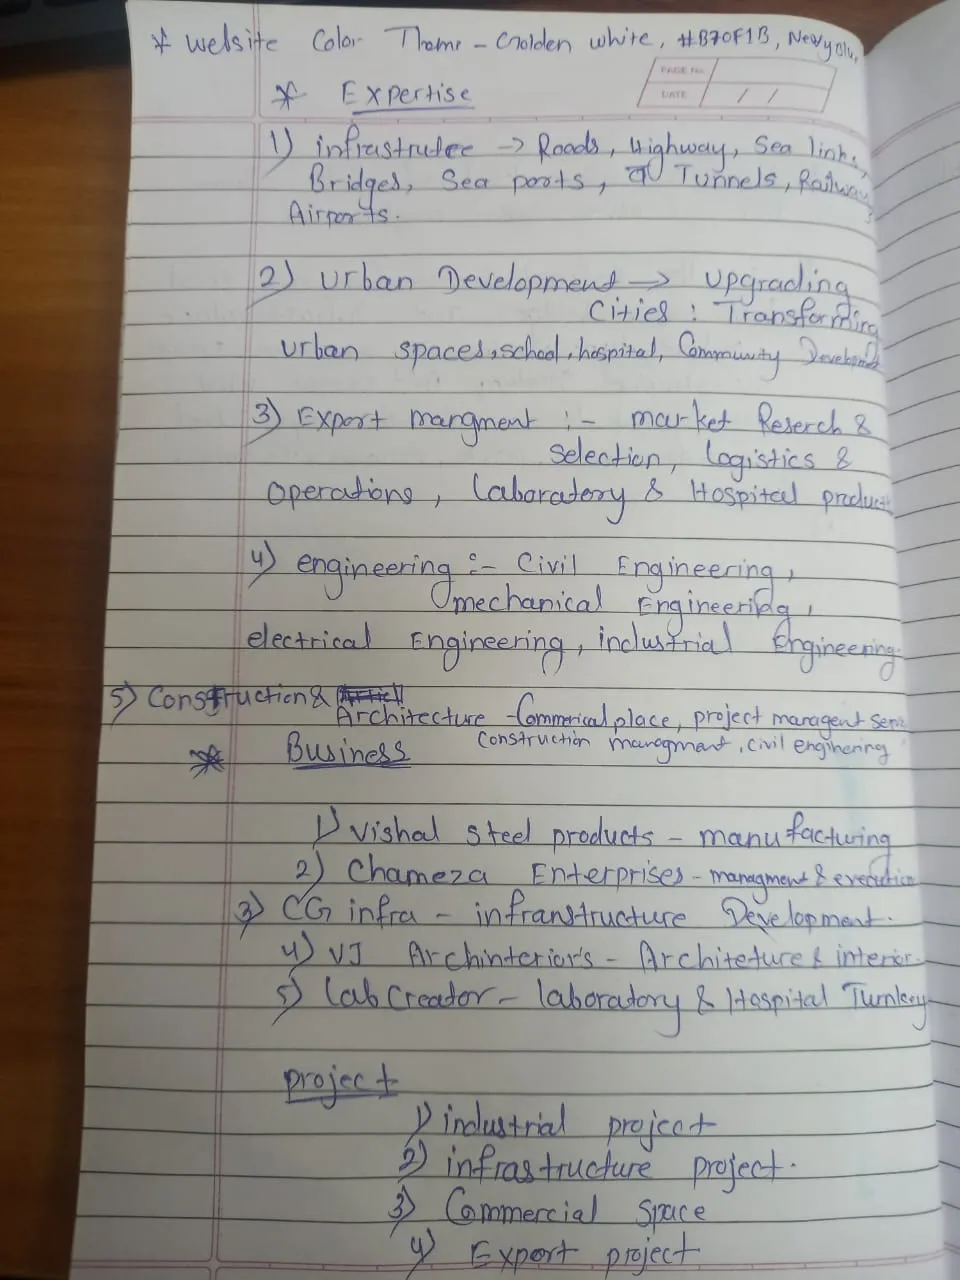 * Website Color Theme - Golden white, #B70F1B, Nevy blu,
PAGE No.
DATE / /
* Expertise
1) infrastrutee -> Roads, Highway, Sea link,
Bridges, Sea ports, Tunnels, Railway,
Airports.
2) Urban Development -> Upgrading
Cities : Transforming
urban spaces, school, hospital, Community Developmet
3) Export mangment :- market Reserch &
selection, logistics &
operations, laboratory & Hospital product
4) engineering :- Civil Engineering,
mechanical Engineering,
electrical Engineering, industrial Engineering.
5) Construction &
Architecture - Commerical place, project managent serv
Construction managment, civil enginering
* Business
1) Vishal steel products - manufacturing
2) Chameza Enterprises - managment & execution
3) CG infra - infranstructure Development.
4) VJ Archinterior's - Architeture & interior.
5) Lab Creator - laboratory & Hospital Turnkey
project
1) industrial project
2) infrastructure project.
3) Commercial Space
4) Export project